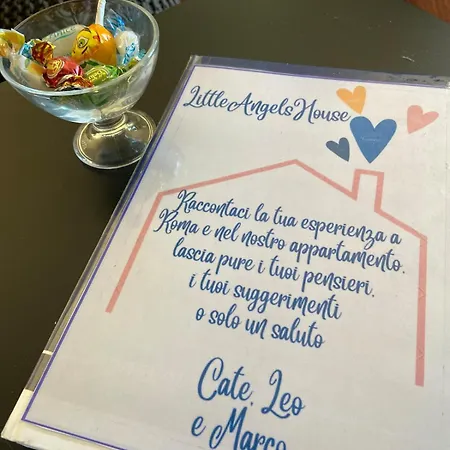 LittleAngelsHouse
Raccontaci la tua esperienza a
Roma e nel nostro appartamento,
lascia pure i tuoi pensieri,
i tuoi suggerimenti
o solo un saluto
Cate, Leo
e Marco